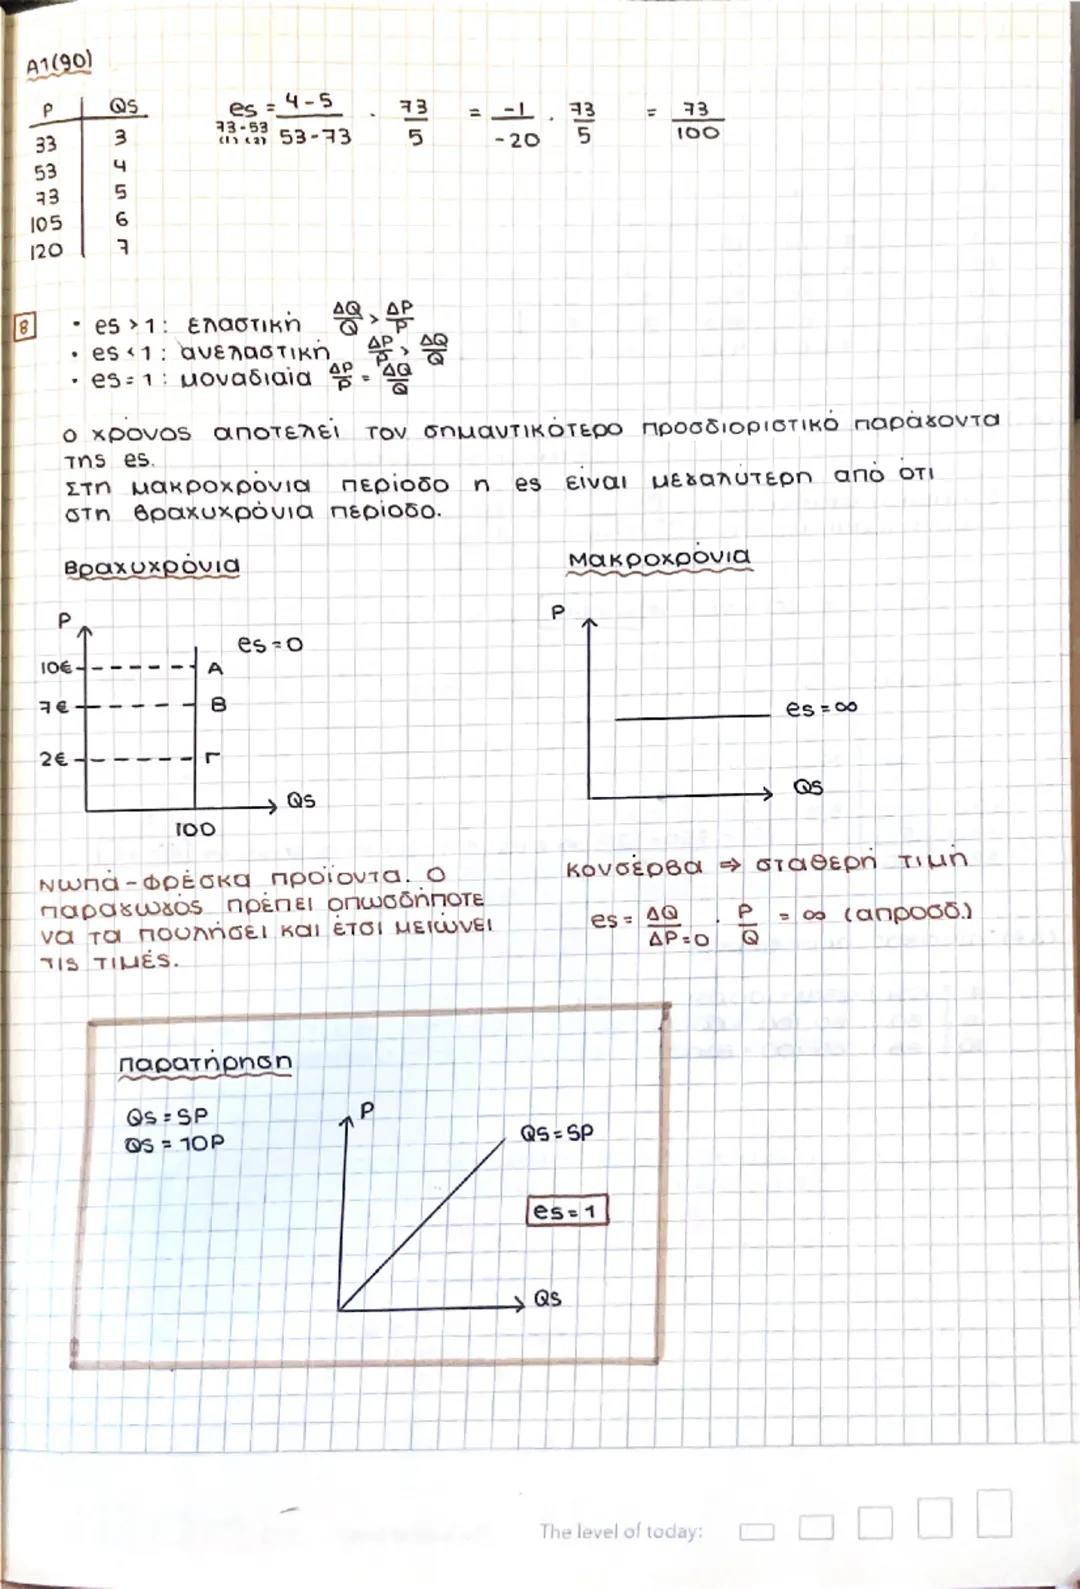 A1(90)
P | QS
33 | 3
53 | 4
73 | 5
105 | 6
120 | 7
es = 4-5 / 53-73 · 73/5 = -1/-20 · 73/5 = 73/100
73-53
(1) (2)
8
• es > 1 : ελαστική ΔQ/Q > ΔP/P
• es < 1 : ανελαστική ΔP/P > ΔQ/Q
• es = 1 : μοναδιαία ΔP/P = ΔQ/Q
Ο χρόνος αποτελεί τον σημαντικότερο προσδιοριστικό παράγοντα
της es.
Στη μακροχρόνια περίοδο η es είναι μεγαλύτερη από ότι
στη βραχυχρόνια περίοδο.
Βραχυχρόνια
P
es = 0
10€ A
7€ B
2€ Γ
QS
100
Μακροχρόνια
P
es = ∞
QS
Νωπά - φρέσκα προϊοντα. Ο
παραγωγός πρέπει οπωσδήποτε
να τα πουλήσει και έτσι μειώνει
τις τιμές.
κονσέρβα ⇒ σταθερή τιμή
es = ΔQ/ΔP=0 · P/Q = ∞ (απροσδ.)
Παρατήρηση
QS = 5P
QS = 10P
P
QS = 5P
es = 1
QS
The level of today: